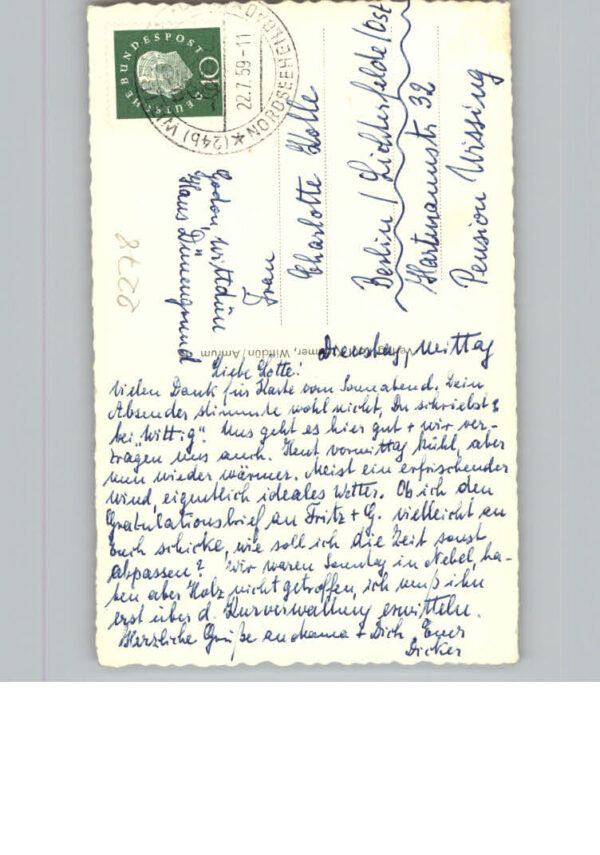 DEUTSCHE BUNDESPOST
10
(24b) WITTDÜN
22.7.59-11
NORDSEEHEILBAD
Godon, Wittdün
Haus Dünengrund
Frau
Charlotte Holle
Berlin / Lichterfelde / Ost
Hartmannstr. 32
Pension Wissing
8728
Wittdün/Amrum
Dienstag, Mittag
Liebe Lotte!
Vielen Dank für Karte vom Sonnabend. Dein
Absender stimmte wohl nicht, Du schriebst
bei "Wittig". Uns geht es hier gut + wir ver-
tragen uns auch. Heut vormittag kühl, aber
nun wieder wärmer. Meist ein erfrischender
Wind, eigentlich ideales Wetter. Ob ich den
Gratulationsbrief an Fritz + G. vielleicht an
Euch schicke, wie soll ich die Zeit sonst
abpassen? Wir waren Sonntag in Nebel, ha-
ben aber Holz nicht getroffen, ich muß ihn
erst über d. Kurverwaltung ermitteln.
Herzliche Grüße an Mama + Dich Euer
Dicker